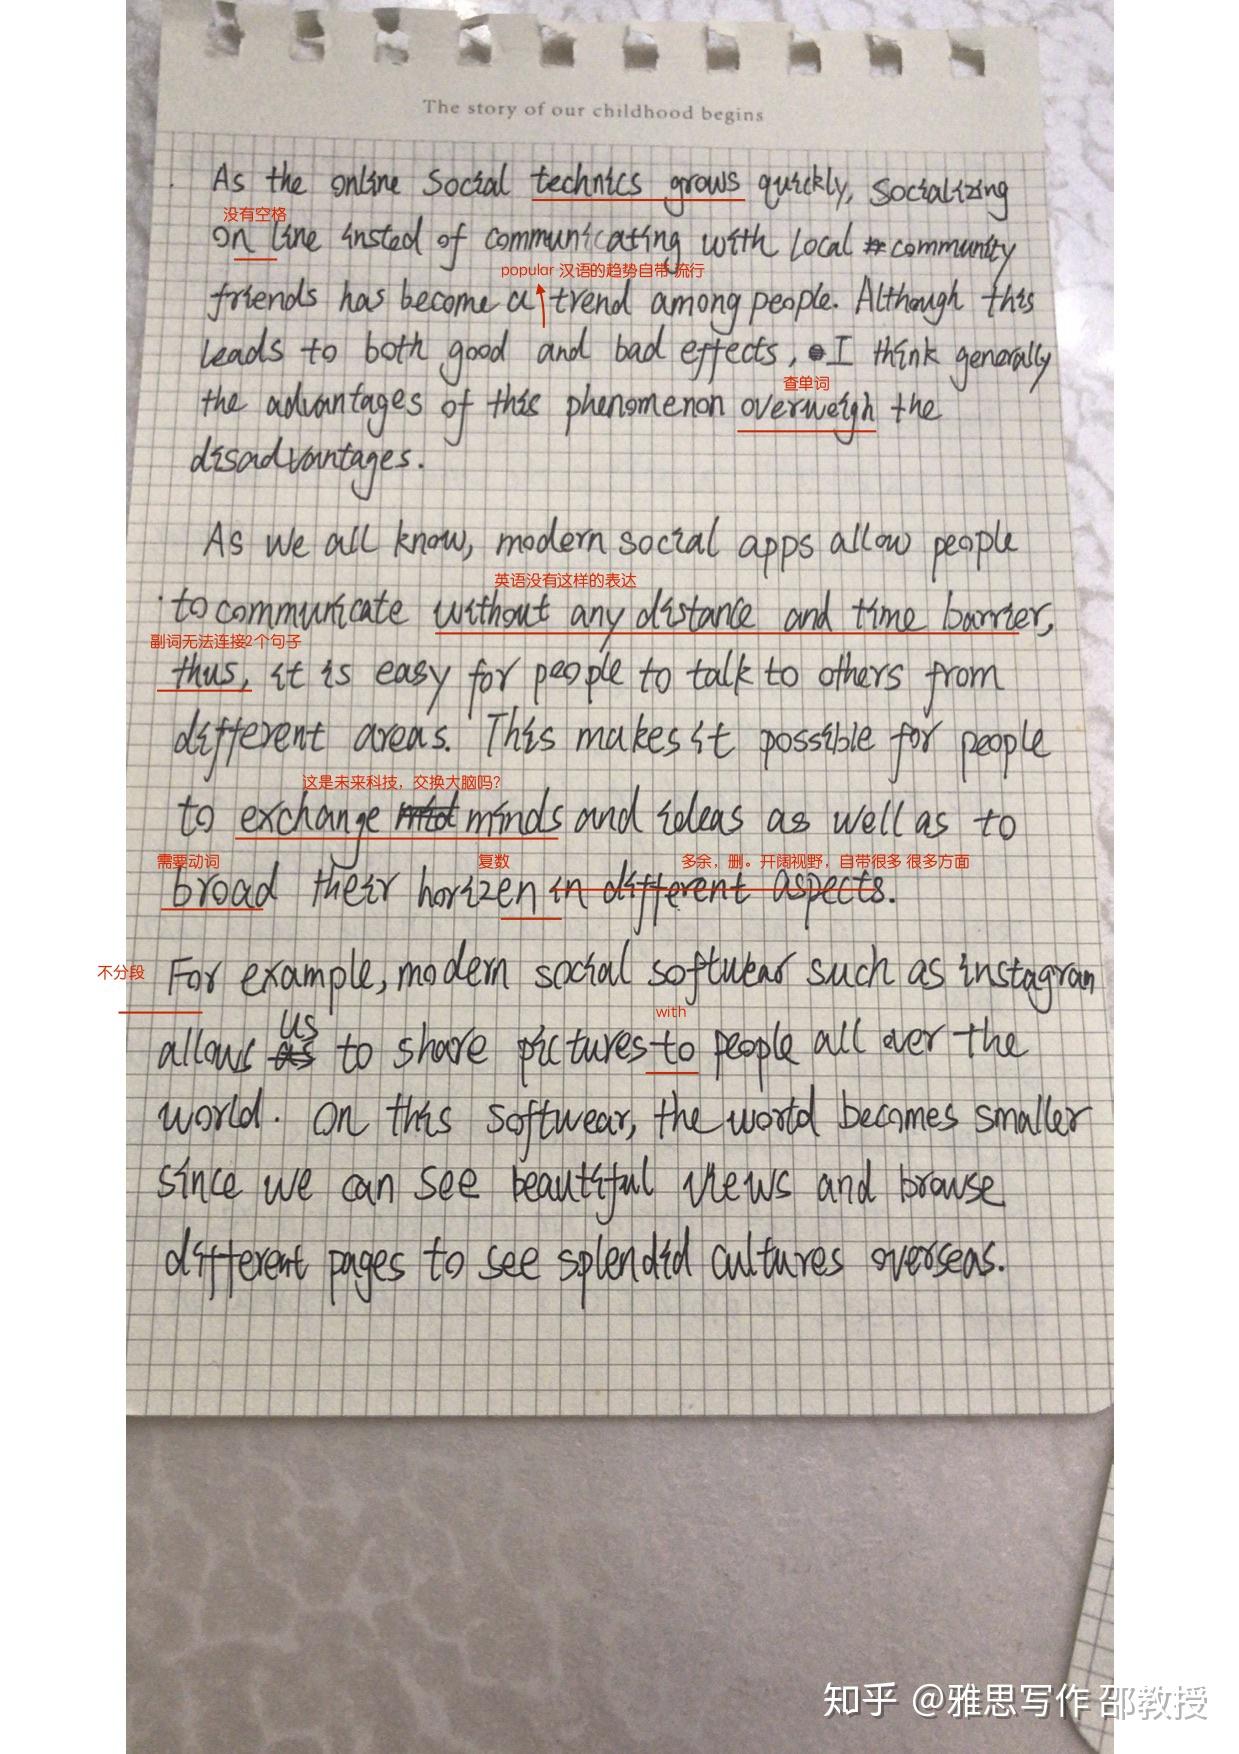 The story of our childhood begins
As the online Social technics grows quickly, Socializing
没有空格
on line insted of communicating with local community
popular 汉语的趋势自带 流行
friends has become a trend among people. Although this
leads to both good and bad effects, I think generally
查单词
the advantages of this phenomenon overweigh the
disadvantages.
As we all know, modern social apps allow people
英语没有这样的表达
to communicate without any distance and time barrier,
副词无法连接2个句子
thus, it is easy for people to talk to others from
different areas. This makes it possible for people
这是未来科技，交换大脑吗?
to exchange minds and ideas as well as to
需要动词 复数 多余，删。开阔视野，自带很多 很多方面
broad their horizen in different aspects.
不分段 For example, modern social softwear such as instagran
with
us
allows as to share pictures to people all over the
world. On this softwear, the world becomes smaller
since we can see beautiful views and browse
different pages to see splendid cultures overseas.
知乎 @雅思写作 邵教授